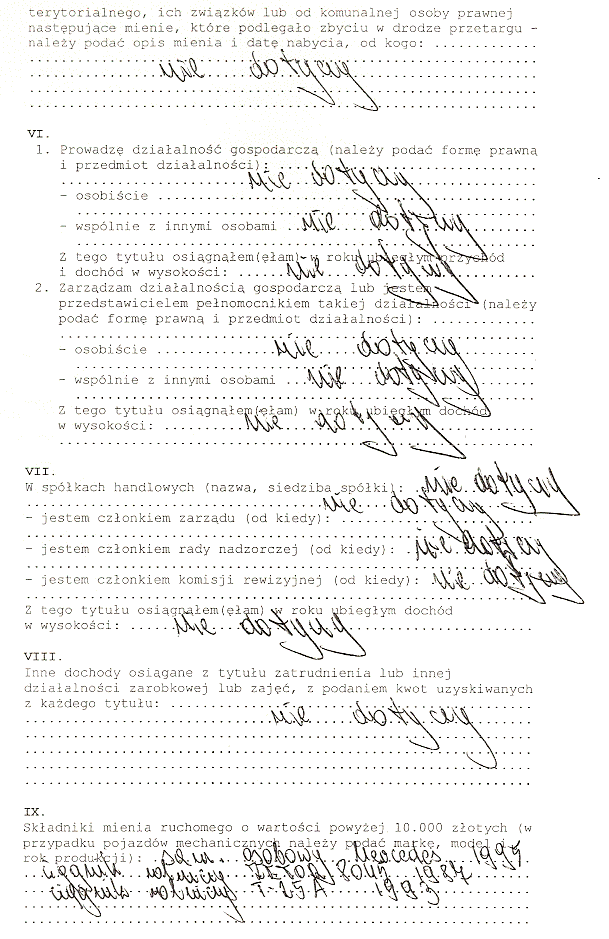 terytorialnego, ich związków lub od komunalnej osoby prawnej
następujące mienie, które podlegało zbyciu w drodze przetargu -
należy podać opis mienia i datę nabycia, od kogo: .............
nie dotyczy
VI.
1. Prowadzę działalność gospodarczą (należy podać formę prawną
i przedmiot działalności): nie dotyczy
- osobiście
- wspólnie z innymi osobami nie dotyczy
Z tego tytułu osiągnąłem(ęłam) w roku ubiegłym przychód
i dochód w wysokości: nie dotyczy
2. Zarządzam działalnością gospodarczą lub jestem
przedstawicielem pełnomocnikiem takiej działalności (należy
podać formę prawną i przedmiot działalności): .............
- osobiście nie dotyczy
- wspólnie z innymi osobami nie dotyczy
Z tego tytułu osiągnąłem(ęłam) w roku ubiegłym dochód
w wysokości: nie dotyczy
VII.
W spółkach handlowych (nazwa, siedziba spółki): nie dotyczy
nie dotyczy
- jestem członkiem zarządu (od kiedy): .............
- jestem członkiem rady nadzorczej (od kiedy): nie dotyczy
- jestem członkiem komisji rewizyjnej (od kiedy): nie dotyczy
Z tego tytułu osiągnąłem(ęłam) w roku ubiegłym dochód
w wysokości: nie dotyczy
VIII.
Inne dochody osiągane z tytułu zatrudnienia lub innej
działalności zarobkowej lub zajęć, z podaniem kwot uzyskiwanych
z każdego tytułu: .............
nie dotyczy
IX.
Składniki mienia ruchomego o wartości powyżej 10.000 złotych (w
przypadku pojazdów mechanicznych należy podać markę, model i
rok produkcji): sam. osobowy Mercedes 1995
ciągnik rolniczy ZETOR 8045 1987
ciągnik rolniczy T-25A 1993